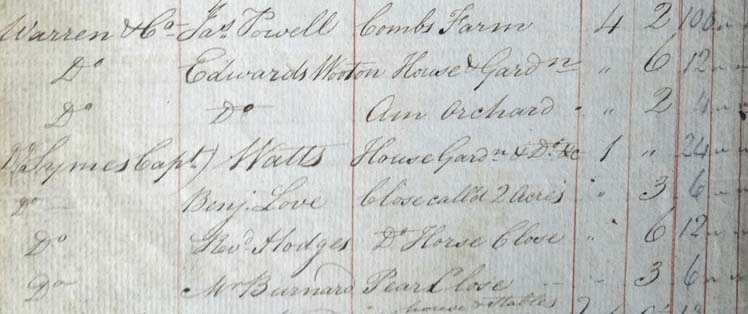 Warren & Co Jas. Powell Combs Farm 4 2 100 " "
Do Edwards Wooton House & Gardn " 6 12 " "
Do Do An Orchard " " 2 4 " "
Symes Capt.) Watts House Gardn & Do &c 1 " 24 " "
Do Benj. Love Close call'd 2 Acres " 3 6 " "
Do Revd. Hodges Do Horse Close " 6 12 " "
Do Mr Burnard Pear Close - - 3 6 " "
house & stables